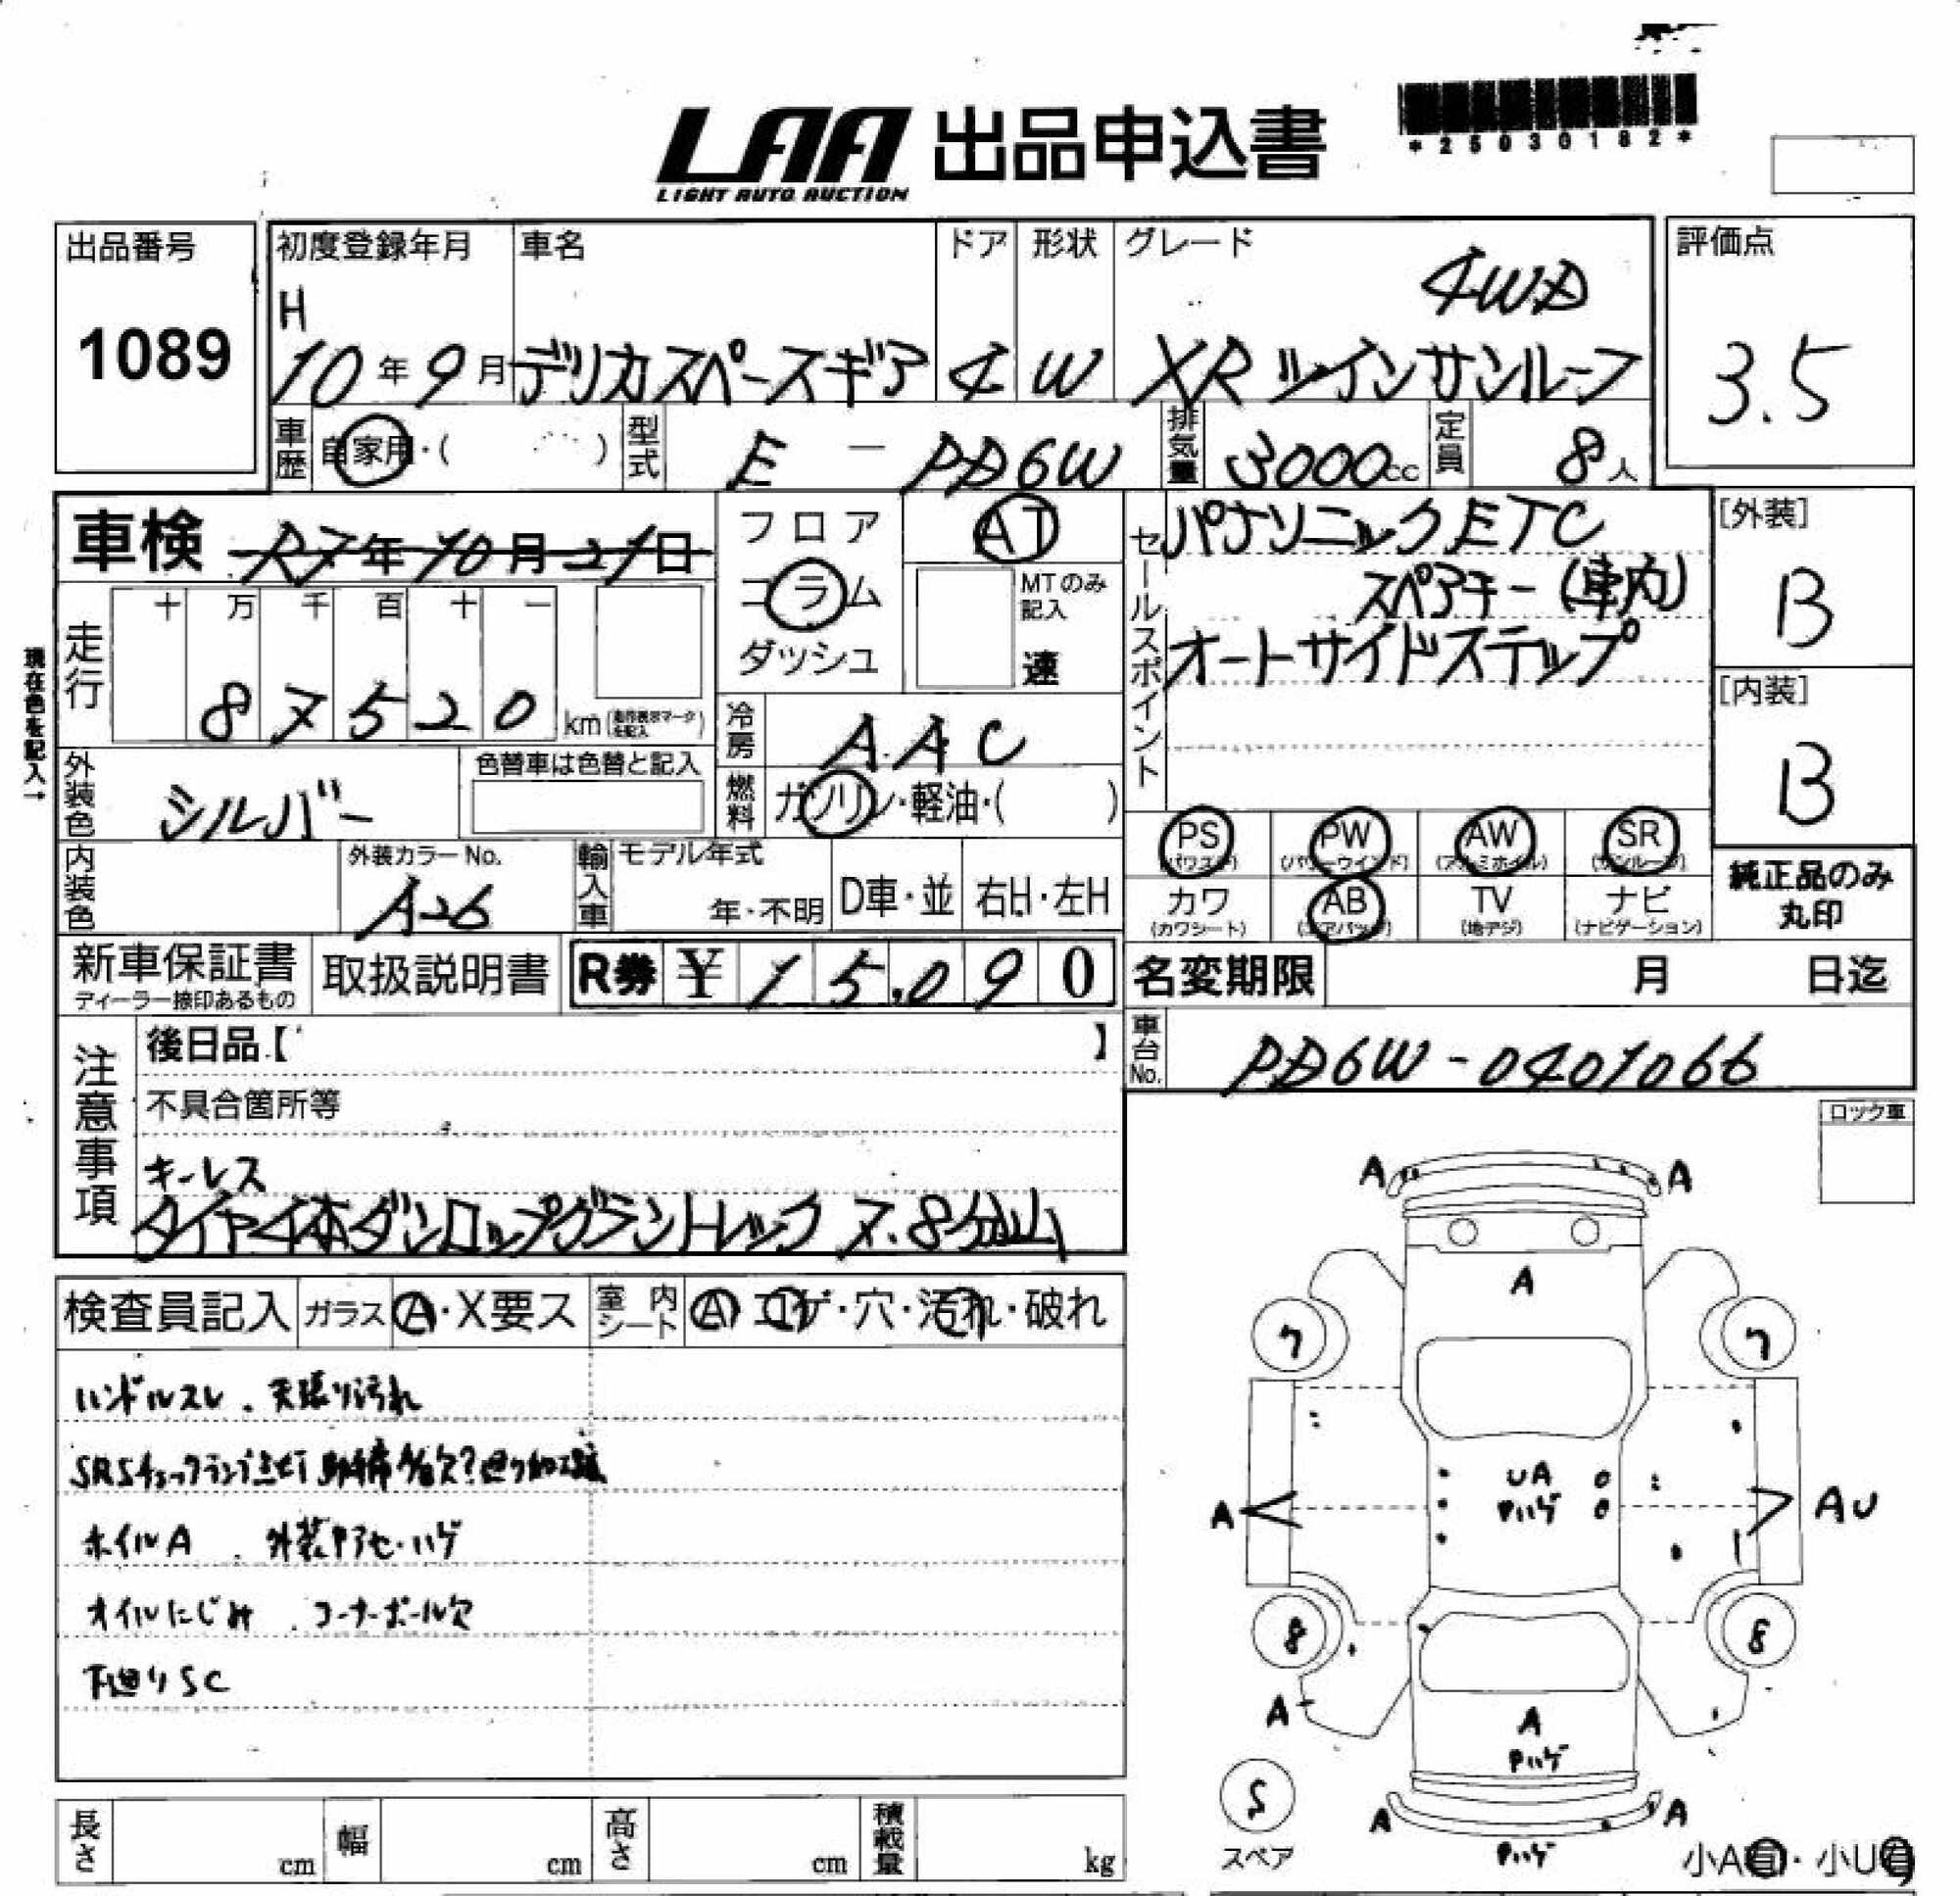 LAA 出品申込書
LIGHT AUTO AUCTION
*25030182*
出品番号
1089
初度登録年月
H
10年9月
車名
デリカスペースギア
ドア
4
形状
W
グレード
4WD
XR ツインサンルーフ
評価点
3.5
車歴 自家用・( )
型式 E - PD6W
排気量 3000cc
定員 8人
車検 R7年10月21日
フロア
コラム
ダッシュ
AT
MTのみ記入
速
セールスポイント
パナソニックETC
スペアキー(車内)
オートサイドステップ
[外装]
B
[内装]
B
現在色を記入→
走行
十 万 千 百 十 一
8 7 5 2 0 km
冷房 AAC
燃料 ガソリン・軽油・( )
外装色 シルバー
色替車は色替と記入
内装色
外装カラーNo.
A26
輸入車
モデル年式
年・不明
D車・並
右H・左H
PS (パワステ)
PW (パワーウインド)
AW (アルミホイル)
SR (サンルーフ)
カワ (カワシート)
AB (エアバッグ)
TV (地デジ)
ナビ (ナビゲーション)
純正品のみ
丸印
新車保証書
ディーラー捺印あるもの
取扱説明書
R券 ¥ 15,090
名変期限 月 日迄
車台No. PD6W-0401066
注意事項
後日品【 】
不具合箇所等
キーレス
タイヤ4本ダンロップグラントレック 7.8分山
ロック車
検査員記入
ガラス A・X要ス
室内シート A・コゲ・穴・汚れ・破れ
ハンドルスレ . 天張り汚れ
SRSチェックランプ点灯
ホイルA . 外装中アセ・ハゲ
オイルにじみ . コーナーポール欠
下廻りSC
A A
A
7 7
UA
ハゲ
A AU
8 8
A
A
ハゲ
S
スペア
A A
ハゲ
小A有・小U有
長さ cm
幅 cm
高さ cm
積載量 kg